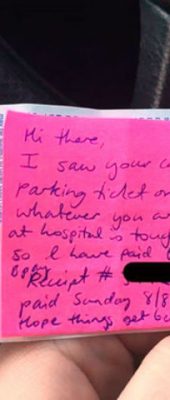 Hi there,
I saw your c
parking ticket on
whatever you ar
at hospital is toug
so I have paid
Receipt #
paid Sunday 8/8
Hope things get be